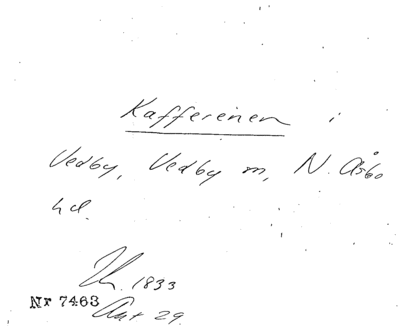 Kafferenen i
Vedby, Vedby m, N. Åsbo
hd.
1833
Nr 7463 Akt 29.